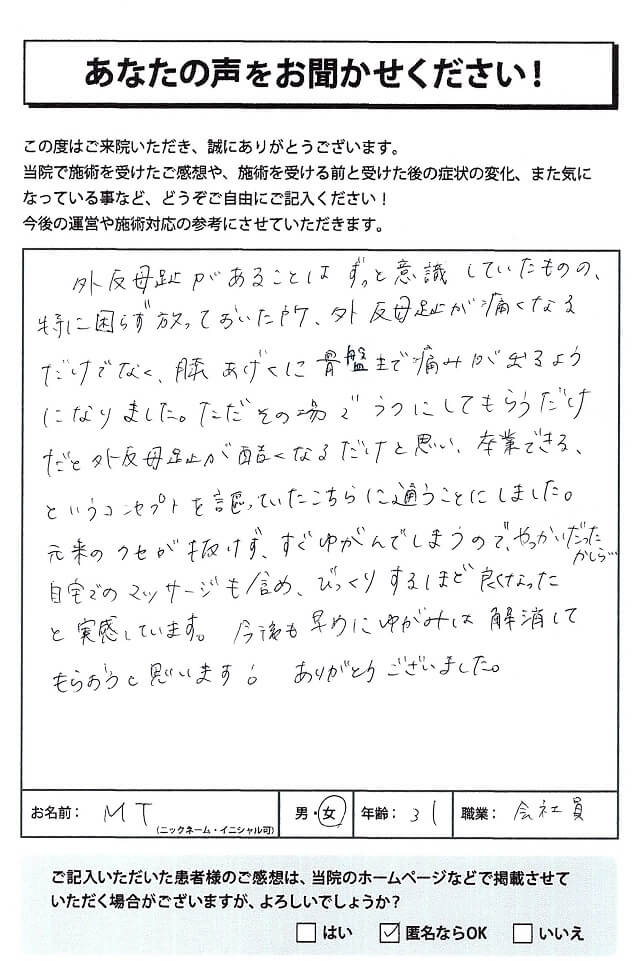 あなたの声をお聞かせください！
この度はご来院いただき、誠にありがとうございます。
当院で施術を受けたご感想や、施術を受ける前と受けた後の症状の変化、また気に
なっている事など、どうぞご自由にご記入ください！
今後の運営や施術対応の参考にさせていただきます。
外反母趾があることはずっと意識していたものの、
特に困らず放っておいた所、外反母趾が痛くなる
だけでなく、膝、あげくに骨盤まで痛みが出るよう
になりました。ただその場でうつにしてもらうだけ
だと外反母趾が酷くなるだけと思い、卒業できる、
というコンセプトを謳っていたこちらに通うことにしました。
元来のクセが抜けず、すぐゆがんでしまうので、やっかいだった
かしら…
自宅でのマッサージも含め、びっくりするほど良くなった
と実感しています。今後も早めにゆがみは解消して
もらおうと思います！ ありがとうございました。
お名前： MT
(ニックネーム・イニシャル可)
男・女
年齢： 31
職業： 会社員
ご記入いただいた患者様のご感想は、当院のホームページなどで掲載させて
いただく場合がございますが、よろしいでしょうか？
はい 匿名ならOK いいえ